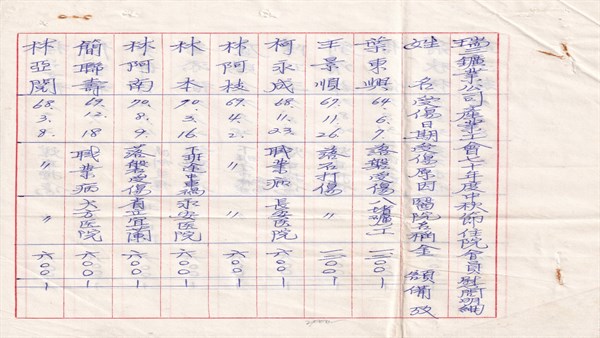 瑞三鑛業公司產業工會七十年度中秋節住院會員慰問明細
姓名 受傷日期 受傷原因 醫院名稱 金額 備攷
葉東興 64.6.7. 落盤受傷 八堵礦工 一二〇〇一
王景順 67.11.26. 落石打傷 〃 一二〇〇一
柯永成 68.11.23. 職業病 長安医院 六〇〇一
林阿枝 69.4.2. 〃 〃 六〇〇一
林本 70.3.16. 下班途中車禍 永安医院 六〇〇一
林阿南 70.8.9. 落盤受傷 省立宜蘭 六〇〇一
簡聯壽 69.12.18 職業病 大方医院 六〇〇一
林亞閔 68.3.8. 〃 〃 六〇〇一